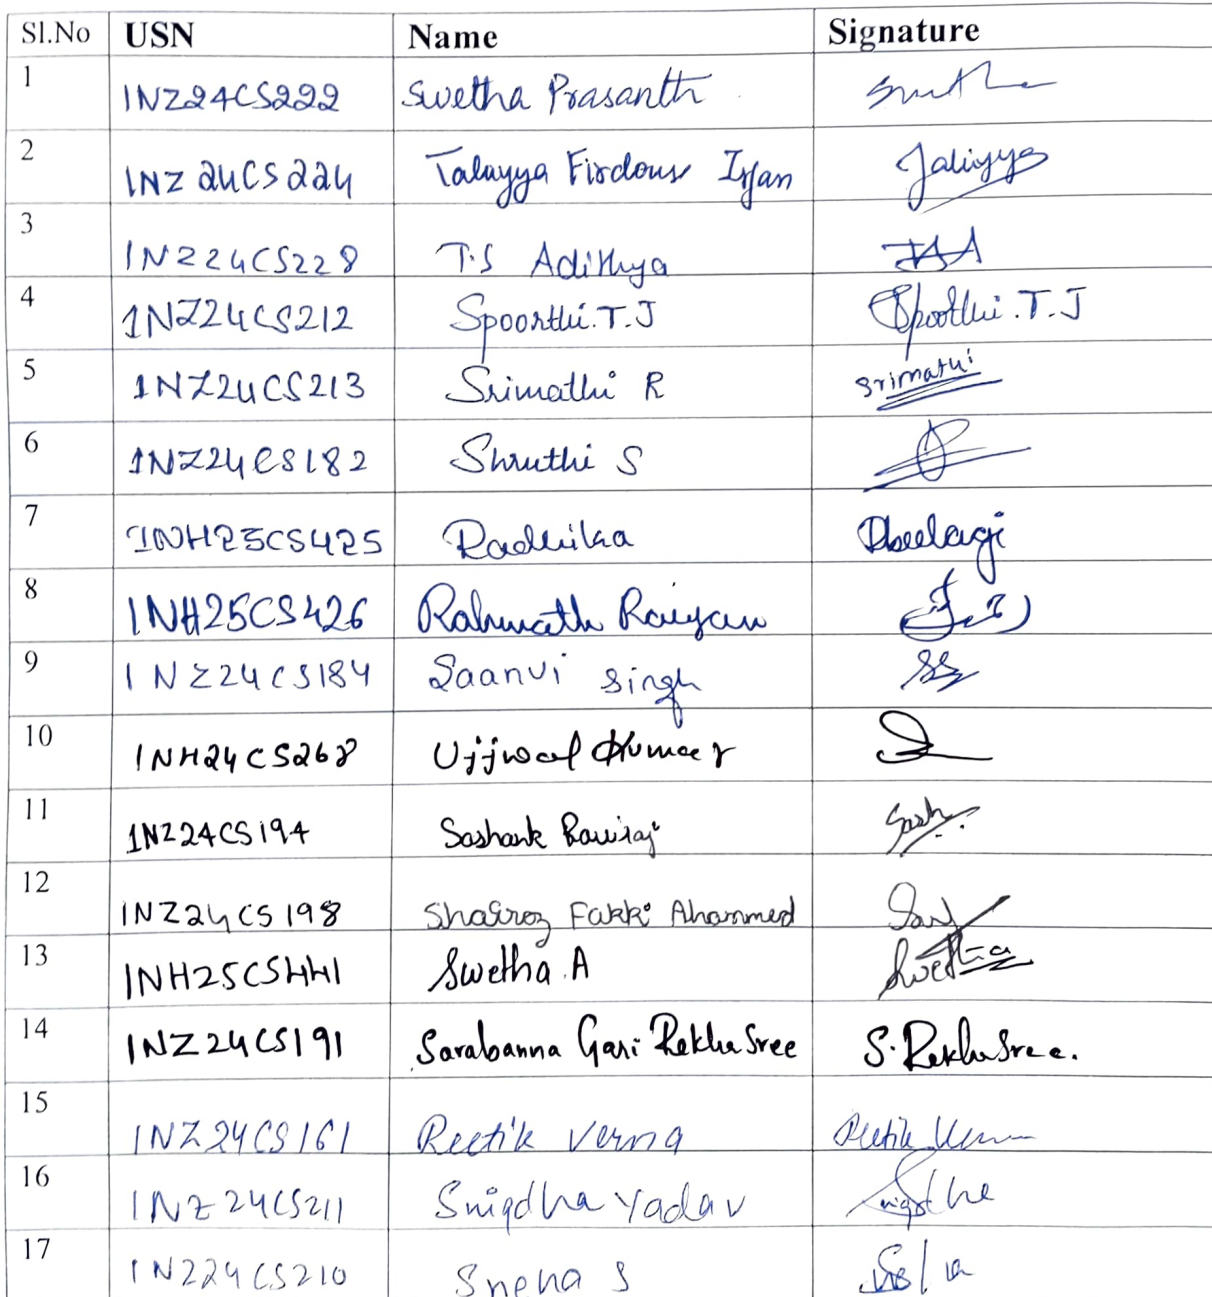 Sl.No USN Name Signature
1 1NZ24CS222 Swetha Prasanth
2 1NZ24CS224 Talayya Firdous Irfan
3 1NZ24CS228 T.S Adithya
4 1NZ24CS212 Spoorthi.T.J Spoorthi.T.J
5 1NZ24CS213 Srimathi R Srimathi
6 1NZ24CS182 Shruthi S
7 1NH25CS425 Radhika
8 1NH25CS426 Rahmath Raiyan
9 1NZ24CS184 Saanvi Singh
10 1NH24CS268 Ujjwal Kumar
11 1NZ24CS194 Sashank Raviraj
12 1NZ24CS198 Fakki Ahammed
13 1NH25CS441 Swetha.A Swetha
14 1NZ24CS191 Sarabanna Gari Rekha Sree S. Rekha Sree.
15 1NZ24CS161 Reetik Verma Reetik Verma
16 1NZ24CS211 Snigdha Yadav Snigdha
17 1NZ24CS210 Sneha S